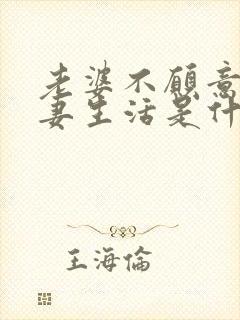 老婆不愿意
妻生活是什
王海倫